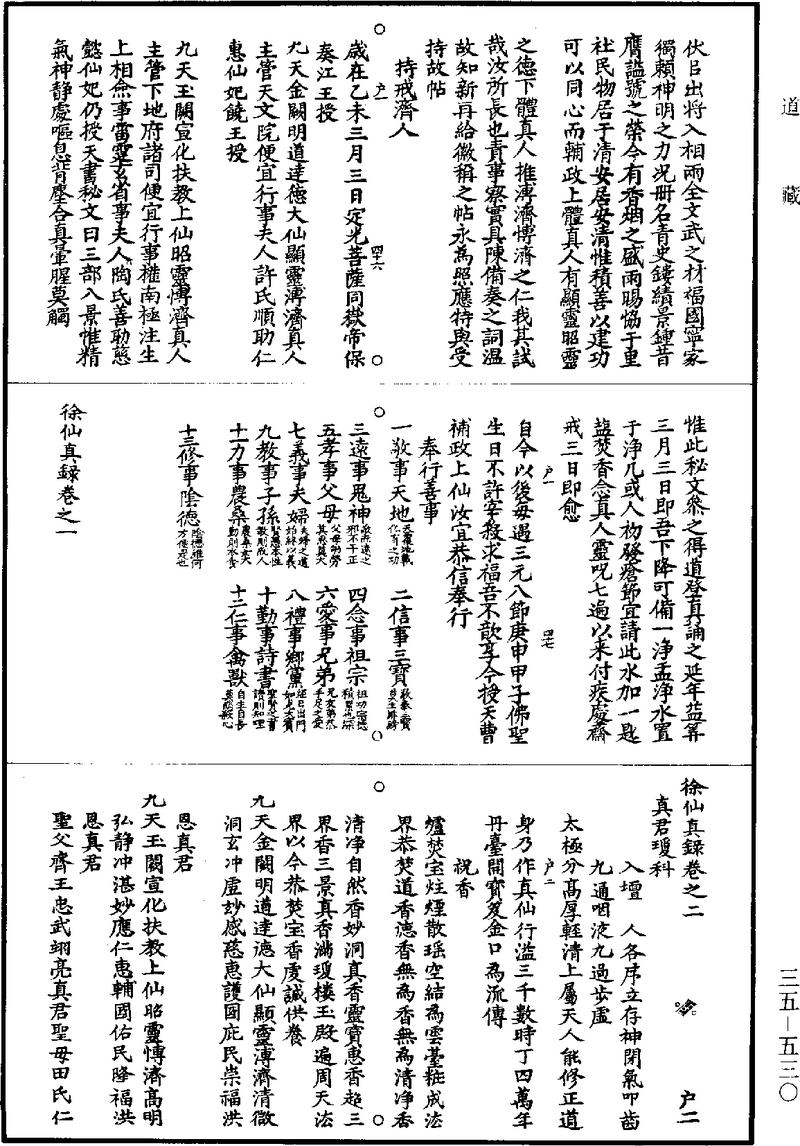 道藏
伏自出將入相兩全文武之材福國寧家
獨賴神明之力況冊名青史鏤績景鍾昔
膺謚號之榮今有香烟之盛雨暘協于里
社民物居于清安居安清惟積善以建功
可以同心而輔政上體真人有顯靈昭靈
之德下體真人推溥濟博濟之仁我其試
哉汝所長也責事察實具陳備奏之詞溫
故知新再給徽稱之帖永為照應特與受
持故帖
持戒濟人
歲在乙未三月三日定光菩薩同嶽帝保
奏江王授
九天金闕明道達德大仙顯靈溥濟真人
主管天文院便宜行事夫人許氏順助仁
惠仙妃饒王授
九天玉闕宣化扶教上仙昭靈博濟真人
主管下地府諸司便宜行事權南極注生
上相僉事雷霆玄省事夫人陶氏善助慈
懿仙妃仍授天書秘文曰三部八景惟精
氣神靜處嘔息背塵合真葷腥莫觸
惟此秘文叅之得道登真誦之延年益筭
三月三日即吾下降可備一淨盂淨水置
于淨几或人初發瘡節宜請此水加一匙
鹽焚香念真人靈呪七遍以來付疾處齋
戒三日即愈
自今以後每遇三元八節庚申甲子佛聖
生日不許宰殺求福吾不歆享今授天曹
補政上仙汝宜恭信奉行
奉行善事
一敬事天地 二信事三寶
三遠事鬼神 四念事祖宗
五孝事父母 六愛事兄弟
七義事夫婦 八禮事鄉黨
九教事子孫 十勤事詩書
十一力事農桑 十二仁事禽獸
十三修事陰德
徐仙真録卷之一
徐仙真録卷之二 户二
真君瓊科
入壇 人各序立存神閉氣叩齒
九通咽液九過步虛
太極分高厚輕清上屬天人能修正道
身乃作真仙行滿三千數時丁四萬年
丹臺開寶笈金口為流傳
祝香
爐焚宝炷煙散瑶空結為雲臺粧成法
界恭焚道香德香無為香無為清淨香
清淨自然香妙洞真香靈寶惠香超三
界香三景真香滿瓊樓玉殿遍周天法
界以今恭焚宝香虔誠供養
九天金闕明道達德大仙顯靈溥濟清微
洞玄冲虛玅感慈惠護國庇民崇福洪
恩真君
九天玉闕宣化扶教上仙昭靈博濟高明
弘静冲湛妙應仁惠輔國佑民隆福洪
恩真君
聖父齊王忠武翊亮真君聖母田氏仁
三五—五三〇